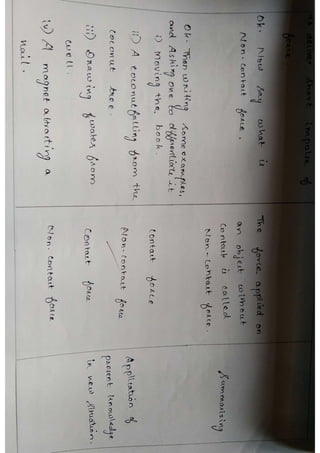 force
Ok. Now say what is
Non-contact force.
Ok. Then writing some examples,
and Asking one to differentiate it
i) Moving the book.
ii) A coconut falling from the
coconut tree.
iii) Drawing water from
well.
iv) A magnet attracting a
nail.
The force applied on
an object without
contact is called
Non-contact force.
Contact force
Non-contact force
Contact force
Non-contact force
Summarising
Application of
present knowledge
in new situation.